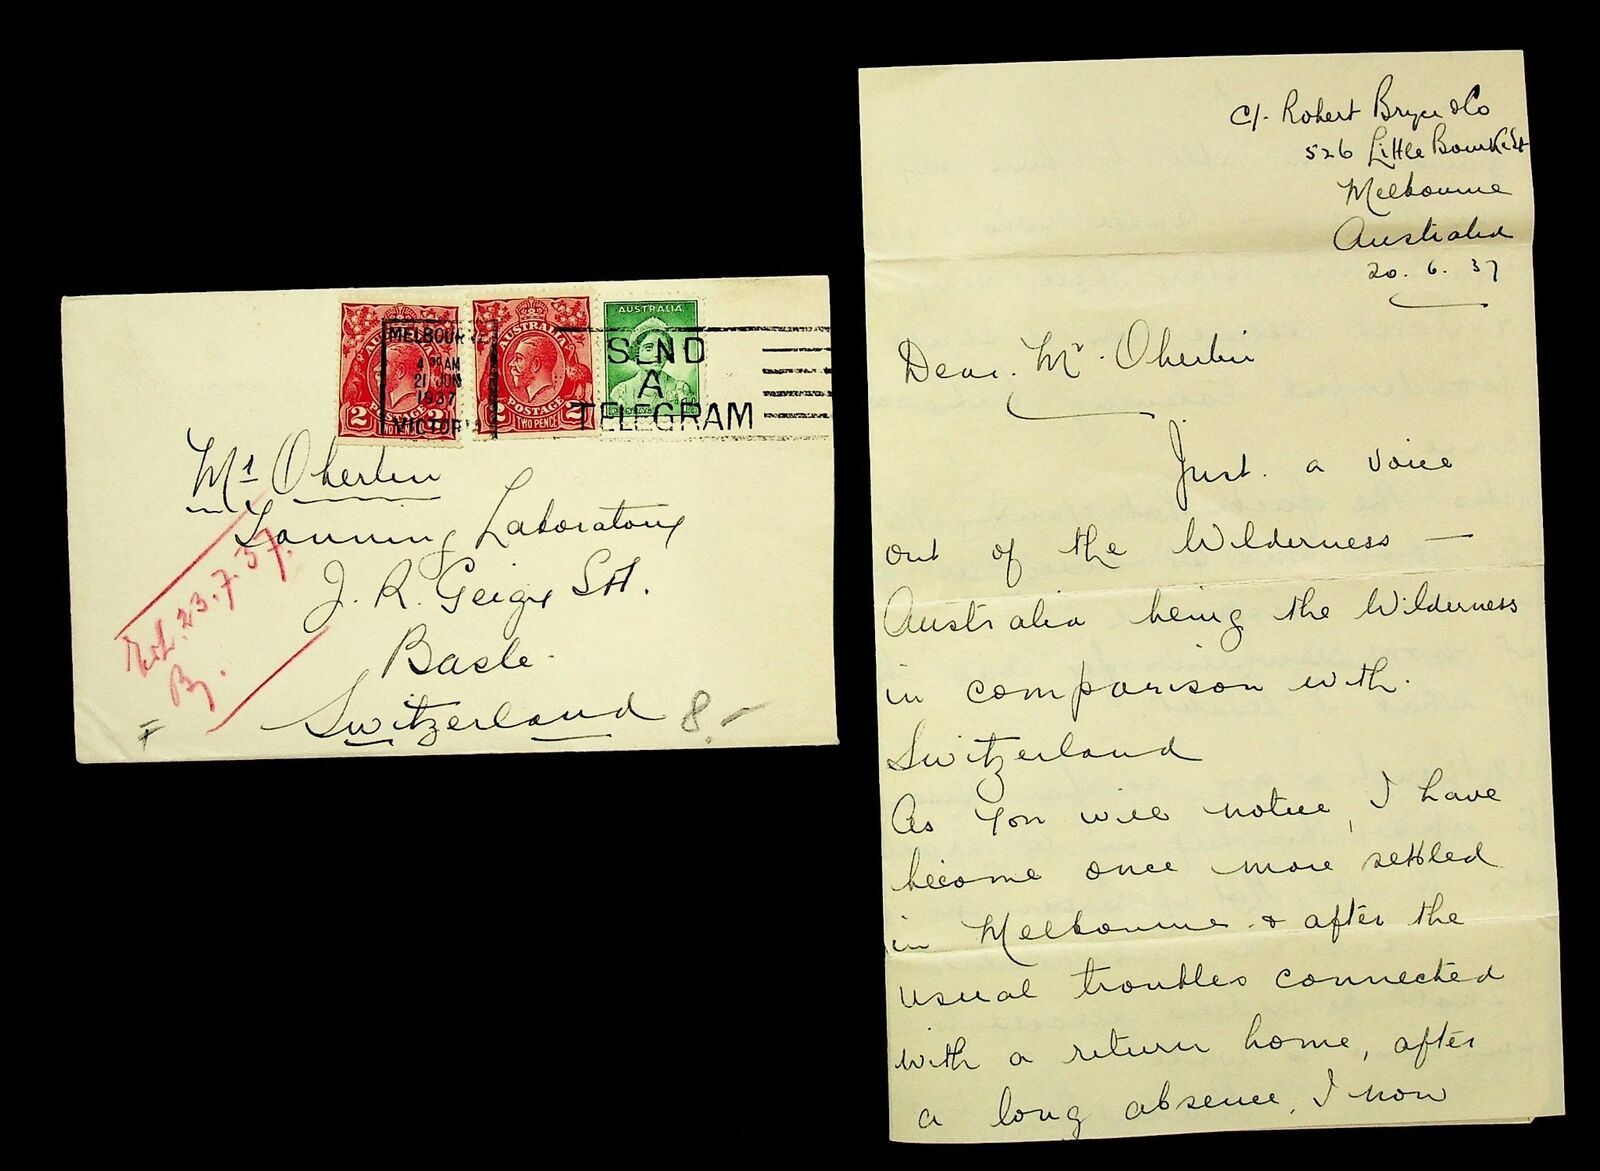 AUSTRALIA
2 2
POSTAGE
TWO PENCE
AUSTRALIA
2 2
POSTAGE
TWO PENCE
AUSTRALIA
MELBOURNE
AM
21 JUN
1937
VICTORIA
SEND
A
TELEGRAM
Mr Oberlin
Tanning Laboratory
J. R. Geigy
Basle.
Switzerland
23.7.37.
8.-
C/- Robert Bryce & Co
526 Little Bourke St
Melbourne
Australia
20. 6. 37
Dear. Mr. Oberlin
Just. a voice
out of the Wilderness —
Australia being the Wilderness
in comparison with.
Switzerland
As you will notice, I have
become once more settled
in Melbourne & after the
usual troubles connected
with a return home, after
a long absence, I now